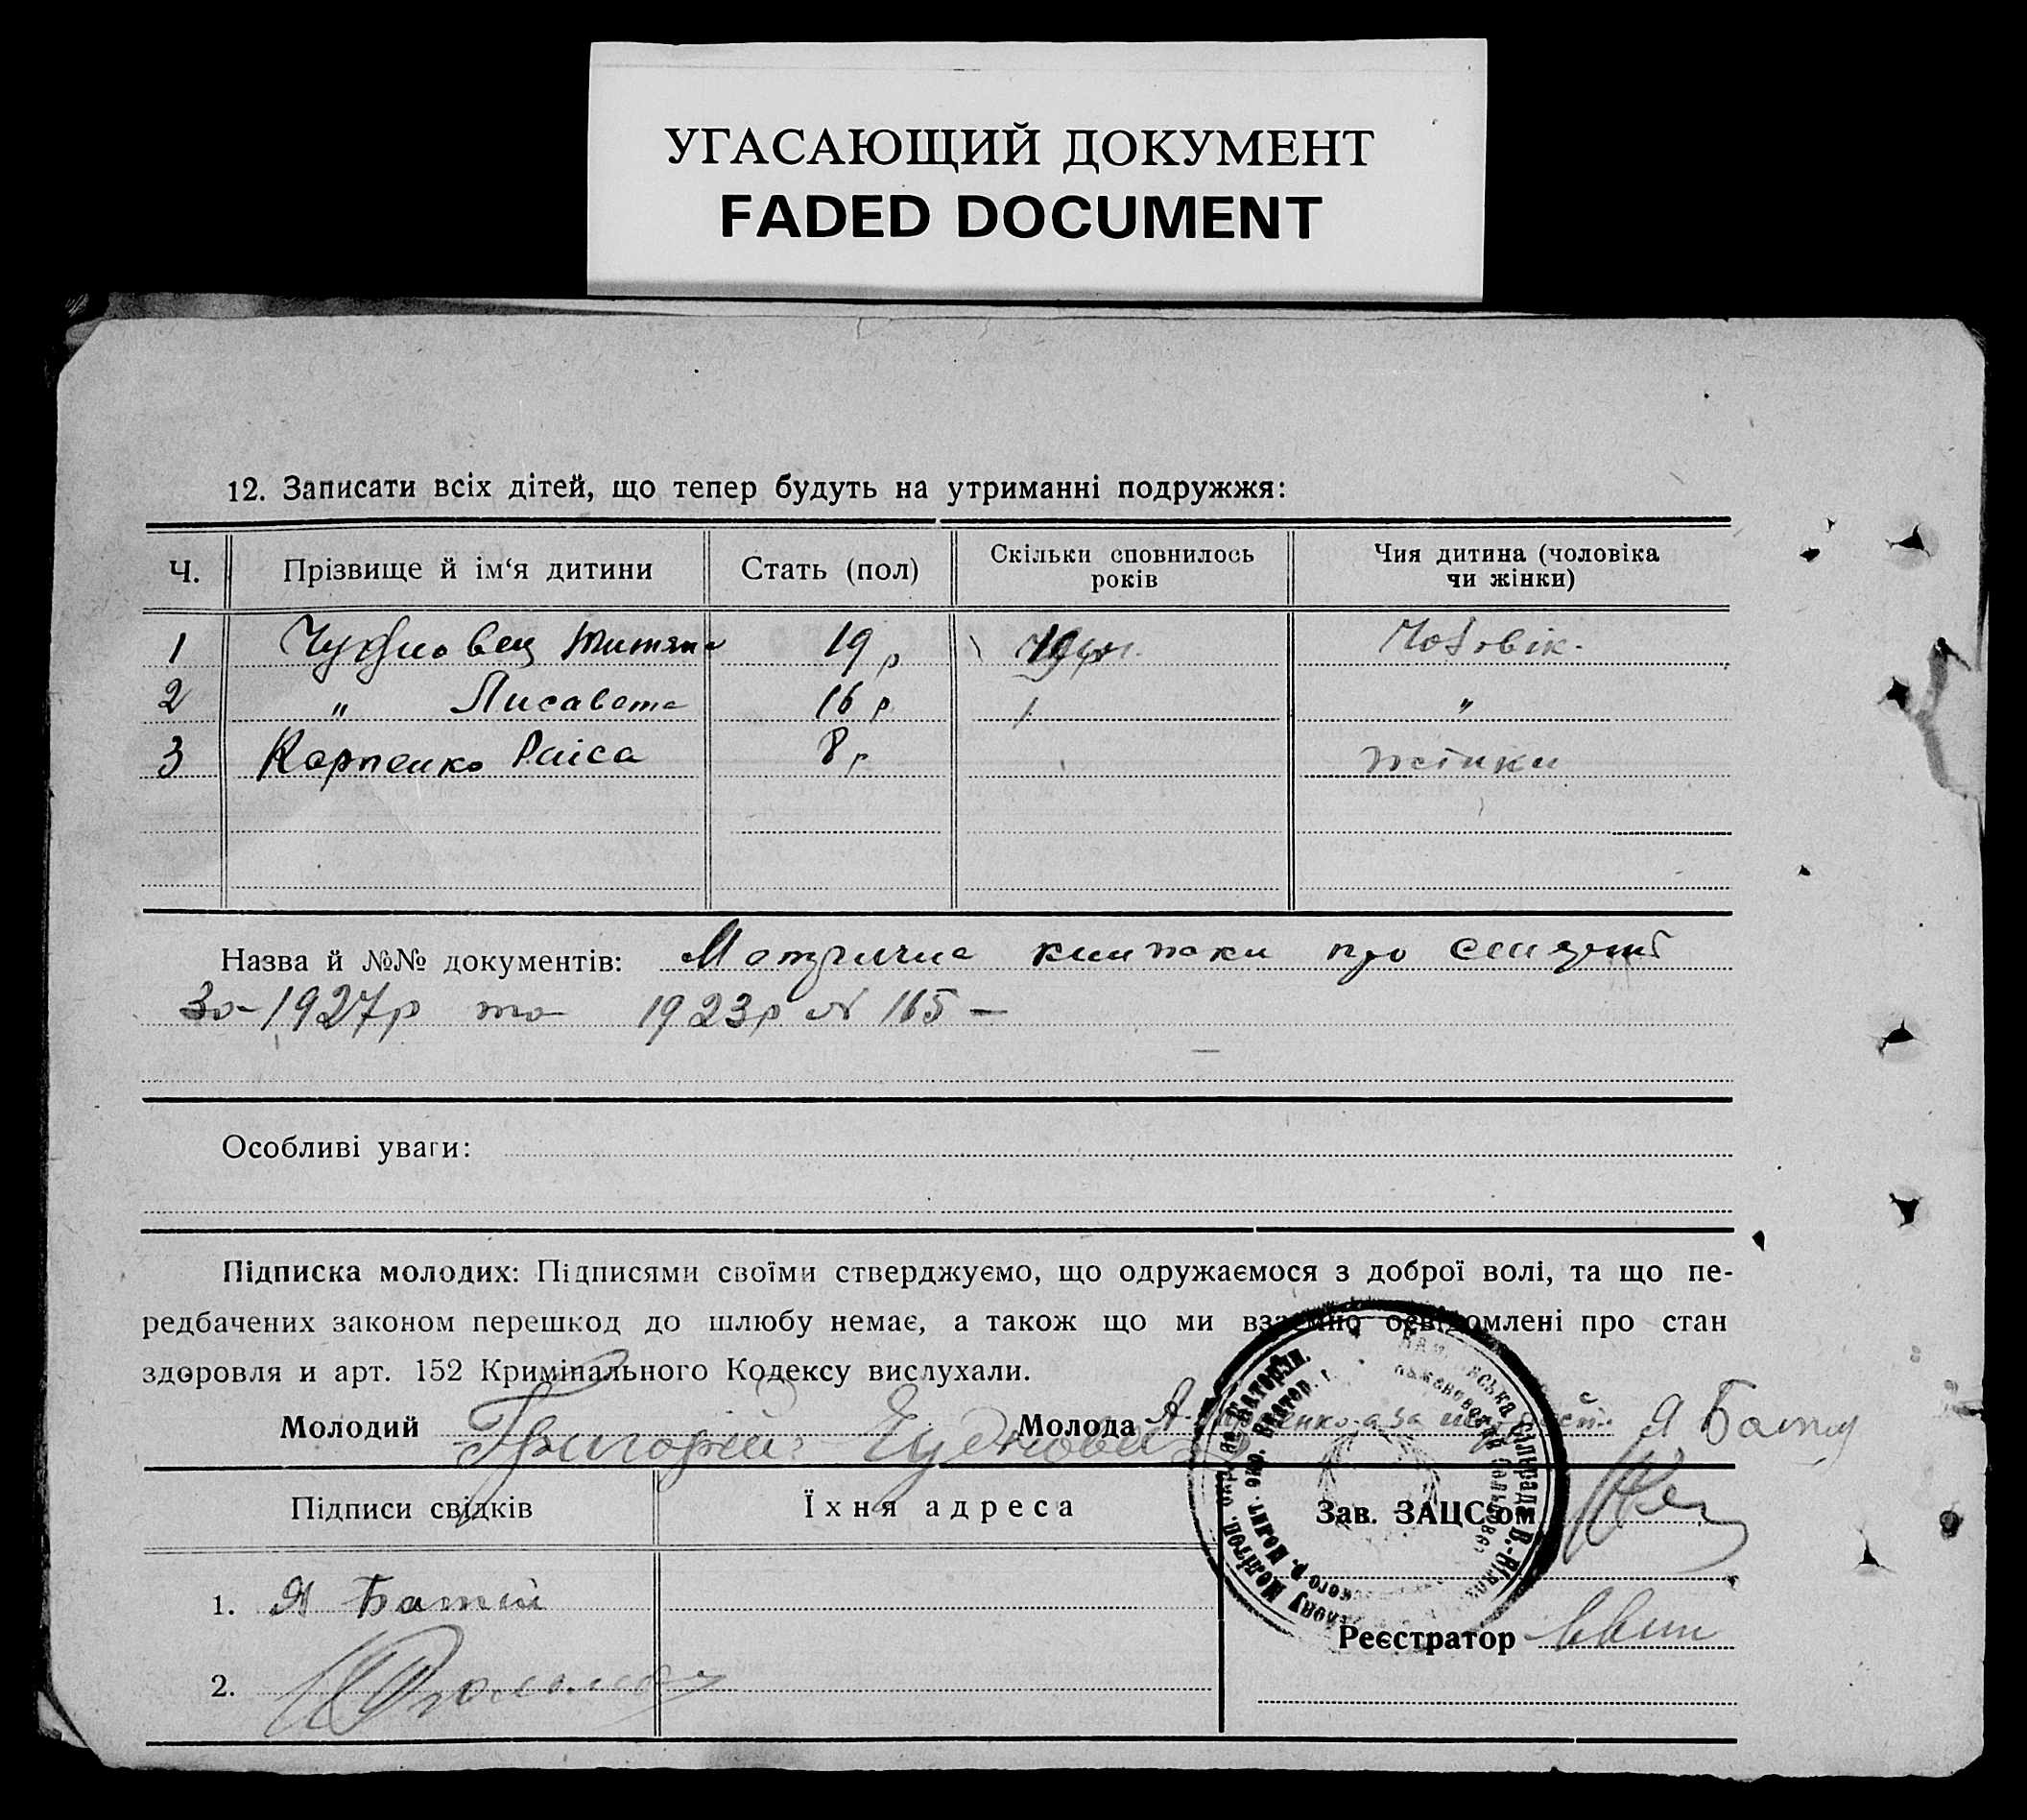 УГАСАЮЩИЙ ДОКУМЕНТ
FADED DOCUMENT
12. Записати всіх дітей, що тепер будуть на утриманні подружжя:
Ч. Прізвище й ім‘я дитини Стать (пол) Скільки сповнилось років Чия дитина (чоловіка чи жінки)
1 19 р Чоловік.
2 " Лисавета 16 р "
3 Карпенко Раїса 8 р жінки
Назва й №№ документів: книжки про
за 1927р та 1923р № 165 –
Особливі уваги:
Підписка молодих: Підписями своїми стверджуємо, що одружаємося з доброї волі, та що пе-
редбачених законом перешкод до шлюбу немає, а також що ми взаємно освідомлені про стан
здоровля и арт. 152 Кримінального Кодексу вислухали.
Молодий Григорій Молода Я
Підписи свідків Їхня адреса Зав. ЗАЦС‘ом
1. Я Батій
Реєстратор
2.